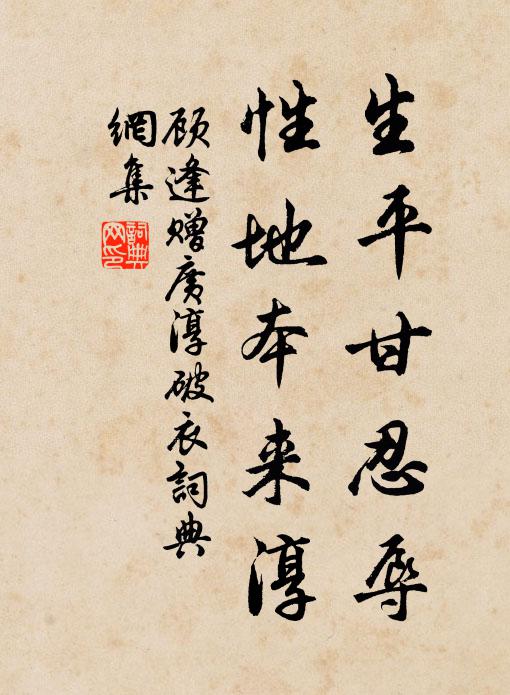 生平甘忍辱
性地本来淳
顾逢赠广淳破衣詞典
網集
詞典网印